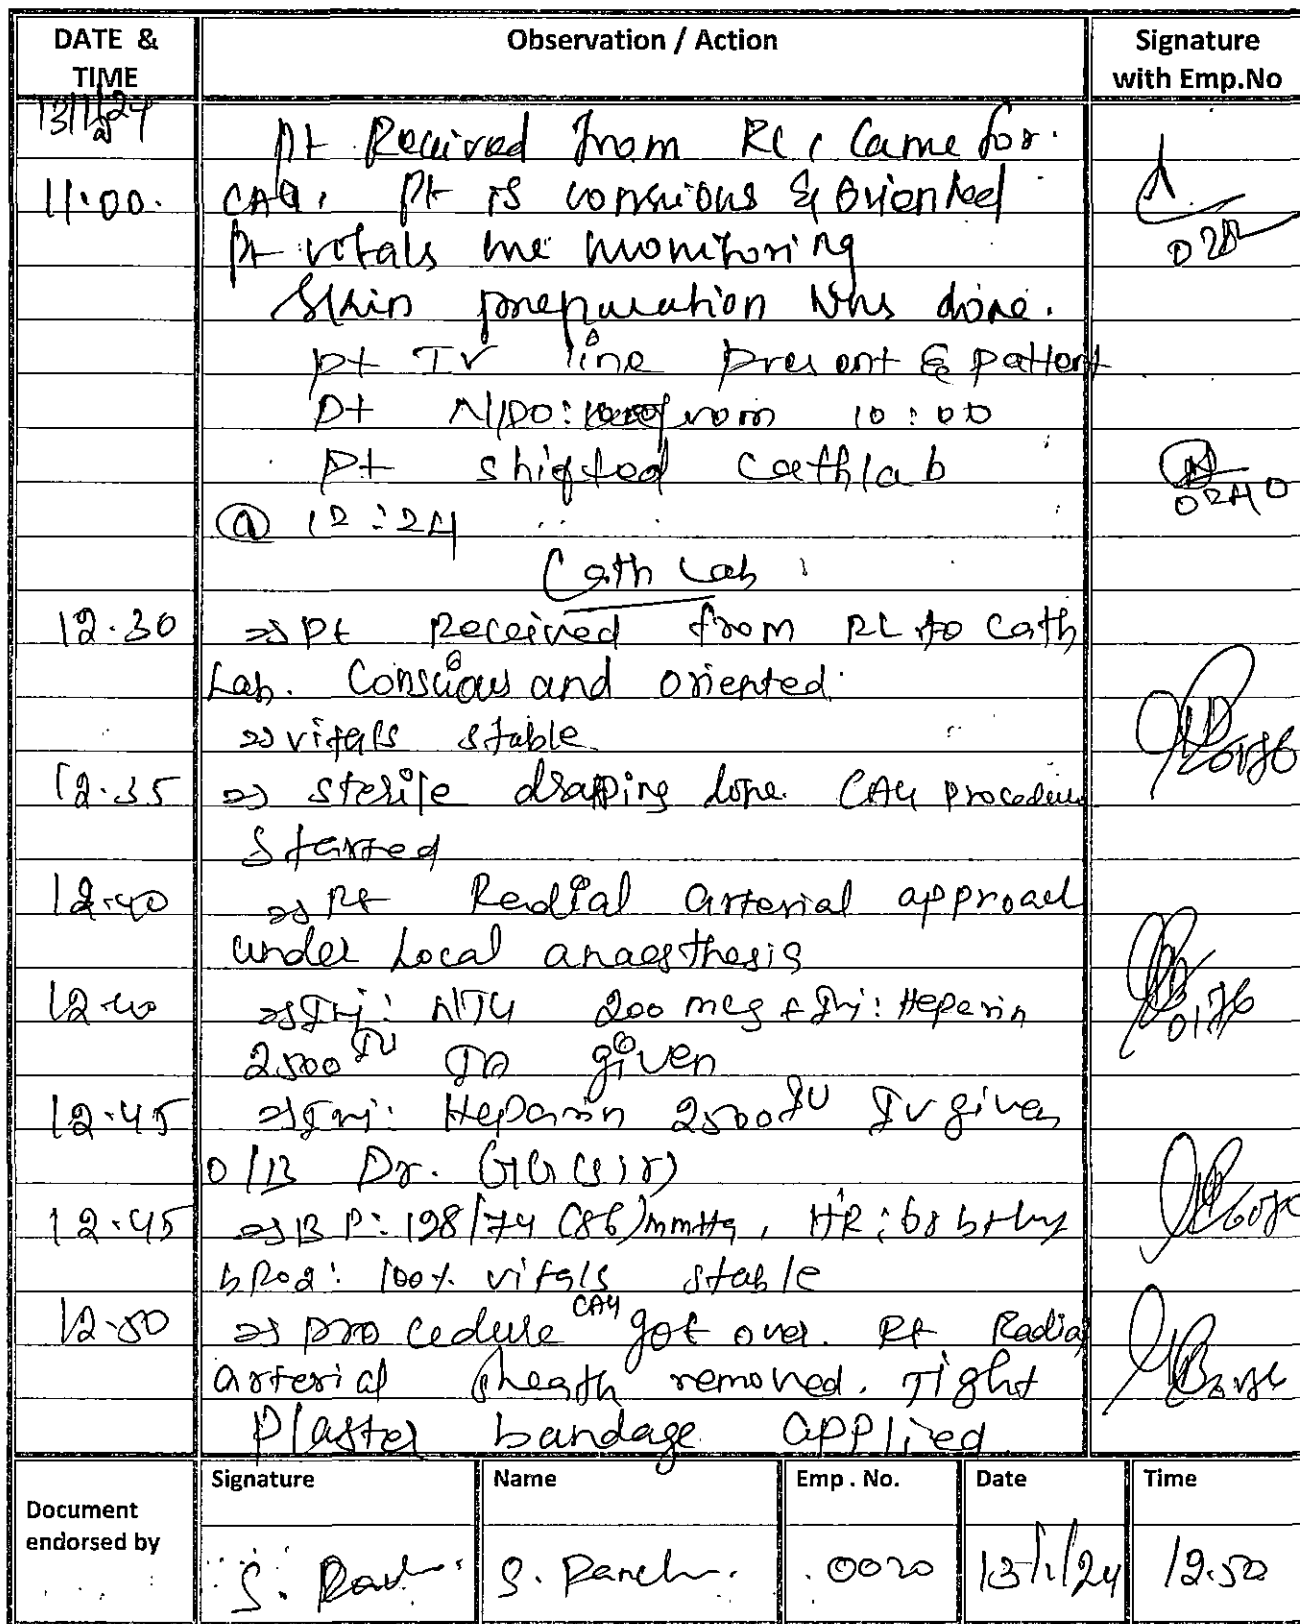 DATE & TIME Observation / Action Signature with Emp.No
13/1/24 Pt Received from RL, Came for
11.00. CAG. Pt is conscious & oriented
Pt vitals are monitoring 028
Skin preparation was done.
pt IV line present & pattent
Pt N/PO: from 10:00
Pt shifted cathlab 0240
@ 12:24
Cath Lab
12.30 => Pt Received from RL to Cath
Lab. Conscious and oriented.
=> vitals stable 0176
12.35 => sterile drapping done. CAG procedure
Started
12.40 => Rt Redial arterial approach
under Local anaesthesis
12.40 => Inj: NTG 200 mcg + Inj: Heparin 0176
2500 IU IA given
12.45 => Inj: Heparin 2500 IU IV given
O/B Dr. GG (sir)
12.45 => BP: 198/74 (86) mmHg, HR: 68 bt/my
SPO2: 100% vitals stable
12.50 => procedure CAG got over. Rt Radial
arterial sheath removed. Tight
Plaster bandage applied
Document endorsed by Signature Name Emp . No. Date Time
S. 0020 13/1/24 12.50